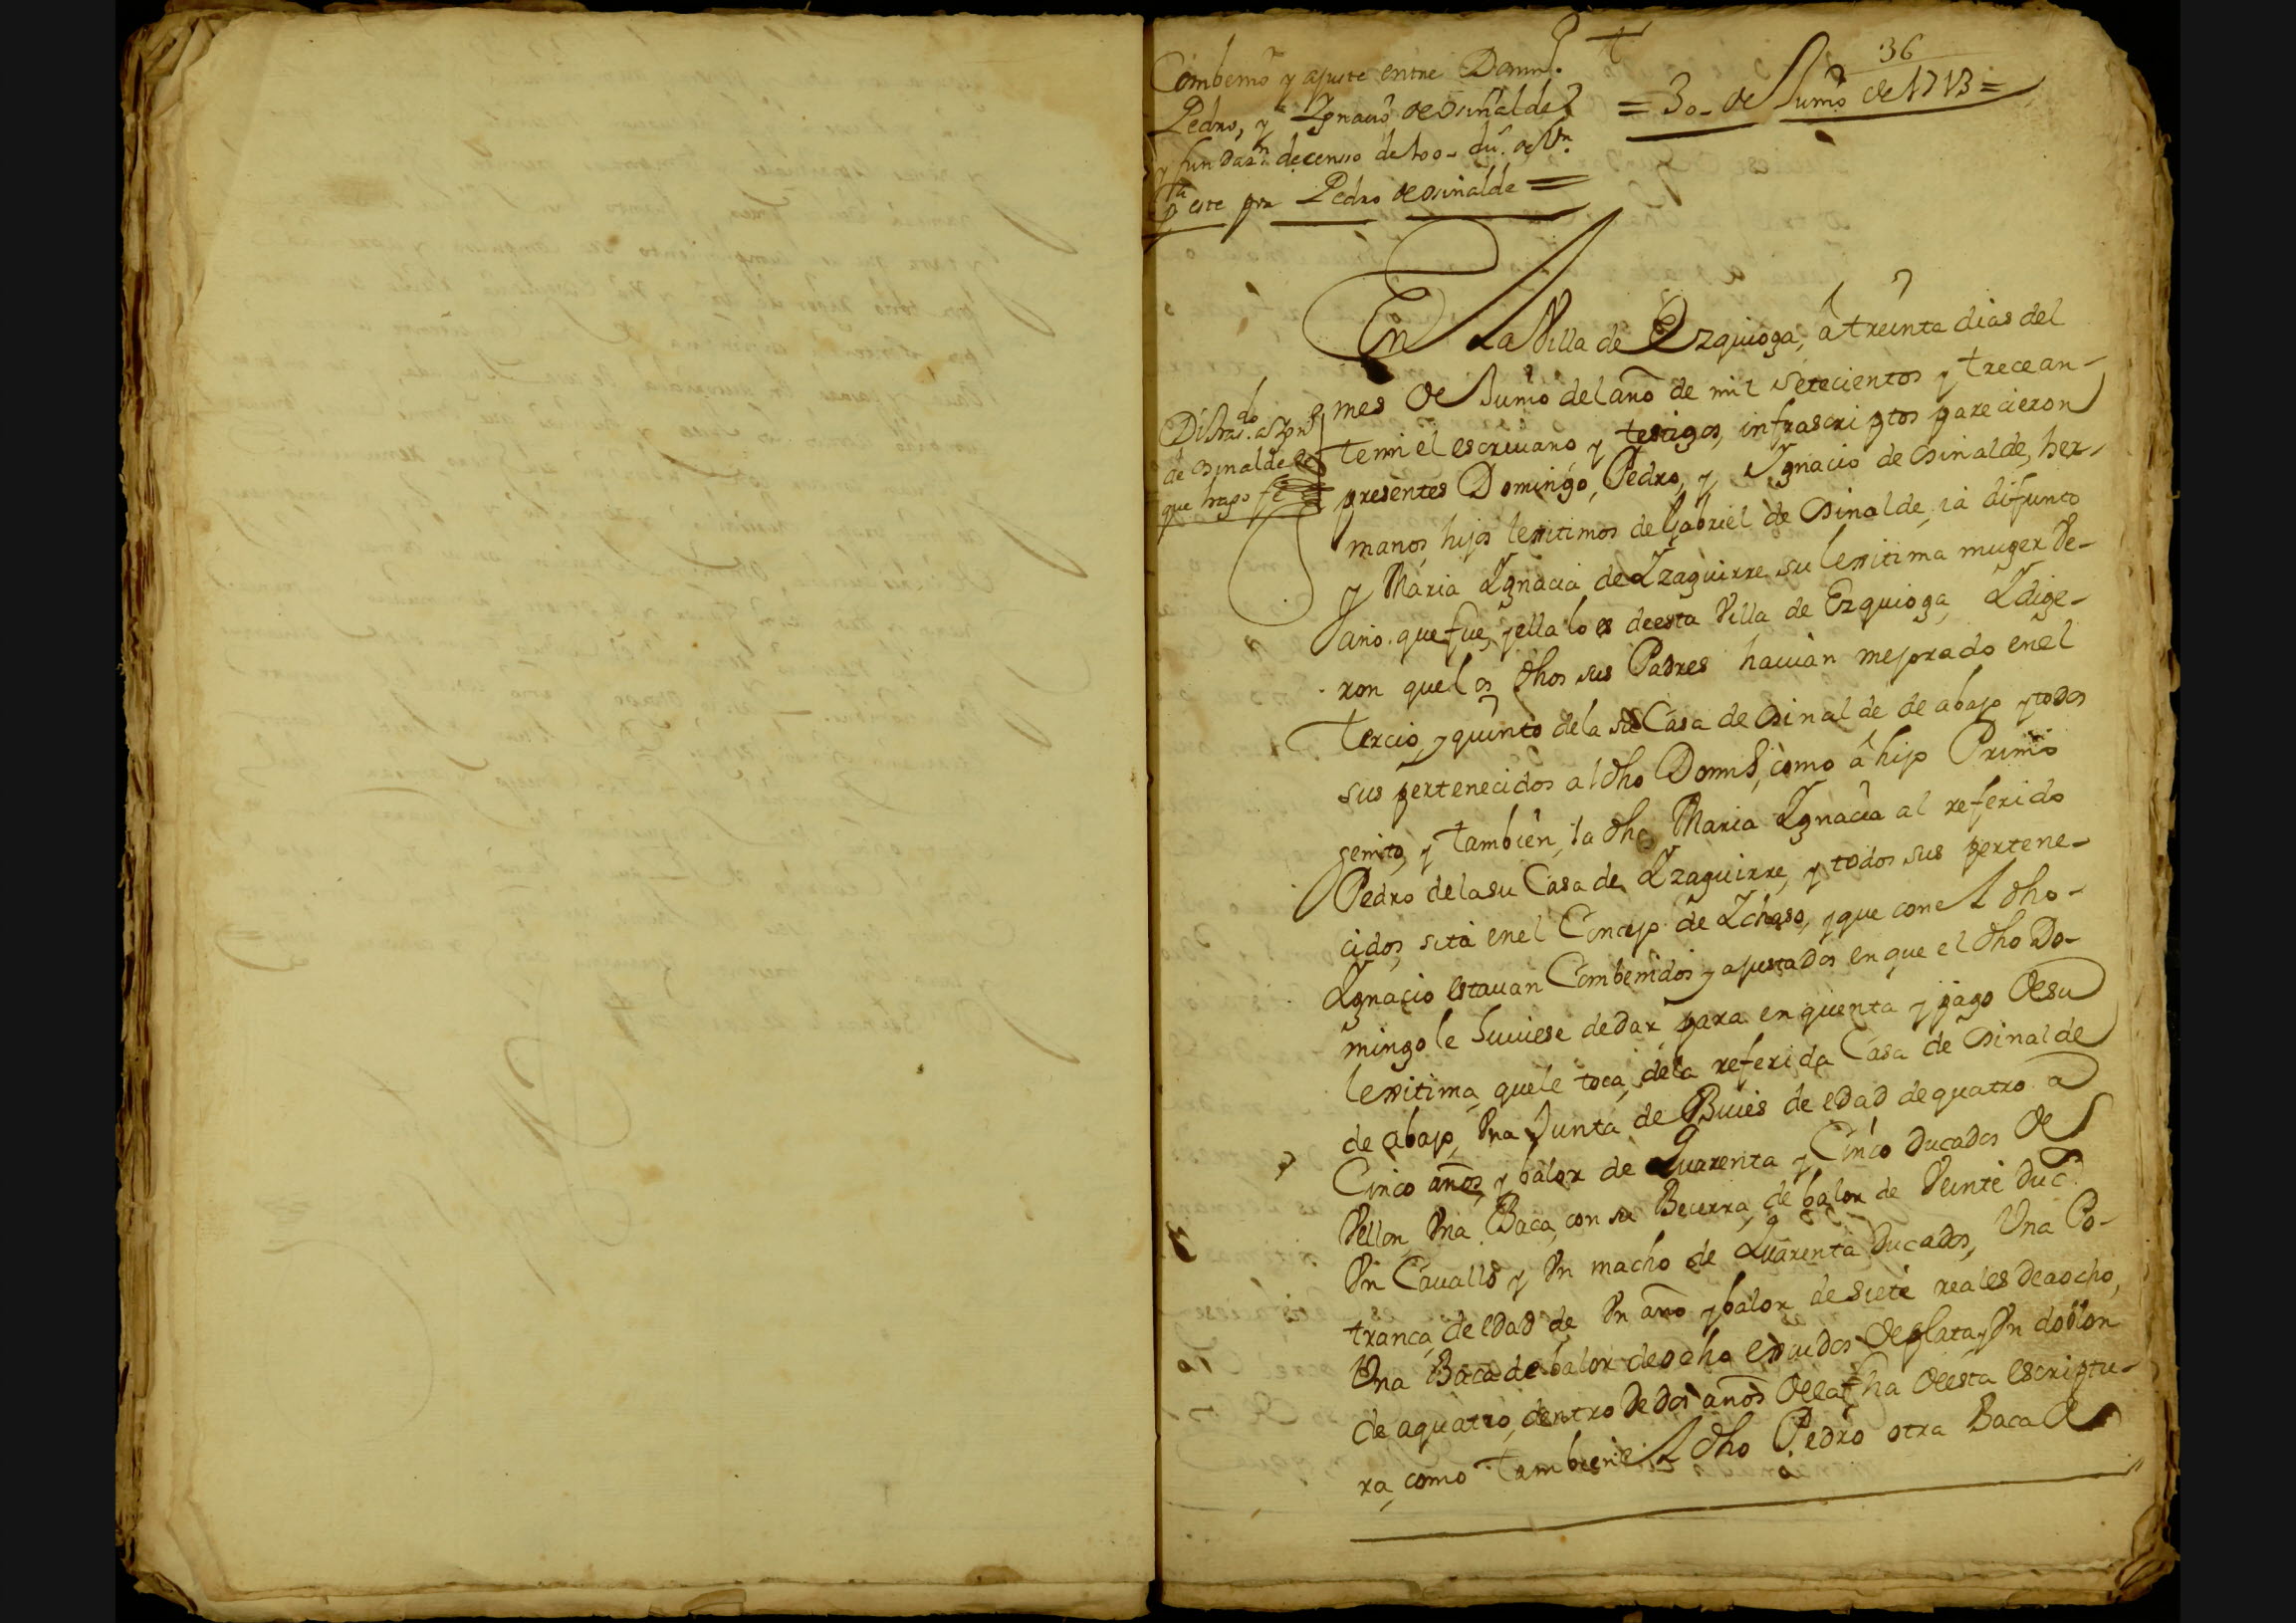 36
Combenio y ajuste entre Domingo
Pedro, y Ygnacio de osinalde
y fundaz.n de censso de 100- du.s de V.n
p.a este por Pedro de osinalde =
= 30- de Junio de 1713 =
En La Villa de Ezquioga, â treinta dias del
mes de Junio del año de mil setecientos y trece an-
te mi el escriuano y testigos, infrascriptos parecieron
presentes Domingo, Pedro, y Ygnacio de osinalde, her-
manos hijos lexitimos de Gabriel de osinalde, ia difunto
y Maria Ygnacia de Yzaguirre su lexitima muger Ve-
zino que fue, y ella lo es de esta Villa de Ezquioga, Y dige-
ron que los dhos sus Padres hauian mejorado en el
Tercio, y quinto de la su Casa de osinalde de abajo y todos
sus pertenecidos al dho Dom.o, como â hijo Primo
genito, y tambien, la dha Maria Ygnacia al referido
Pedro de la su Casa de Yzaguirre, y todos sus pertene-
cidos, sita en el Concejo de Ychaso, y que con el dho-
Ygnacio estauan Combenidos y ajustados en que el dho Do-
mingo le huuiese de dar para en quenta y pago de su
lexitima, que le toca, de la referida Casa de osinalde
de abajo, Vna Junta de Buies de edad de quatro a
Cinco años, y balor de Quarenta y Cinco ducados de
Vellon, Vna Baca, con su Becerra, de balor de Veinte duc.s
Vn Cauallo y Vn macho de Quarenta ducados, Una Po-
tranca, de edad de Vn año y balor de siete reales de a ocho,
Vna Baca de balor de ocho escudos de plata, y Vn doblon
de a quatro, dentro de dos años de la fha de esta escriptu-
ra, como tambien el dho Pedro otra Baca de
de osinalde de
que hago fe